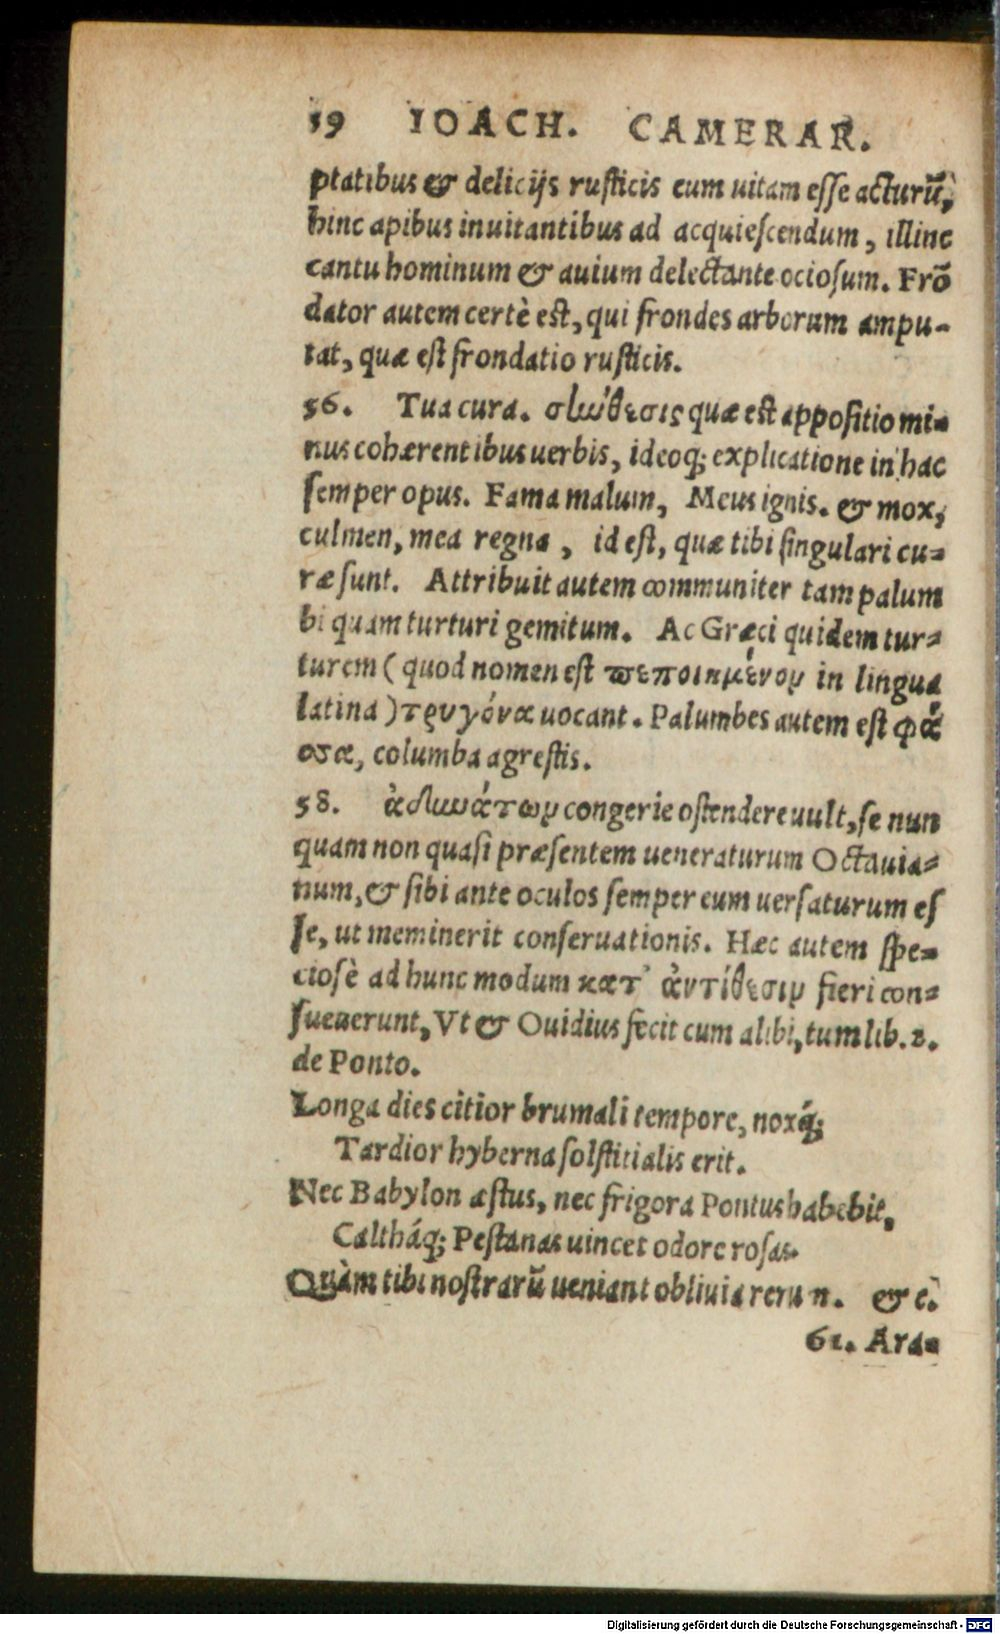 59 IOACH. CAMERAR.
ptatibus & delicijs rusticis eum uitam esse acturū,
hinc apibus inuitantibus ad acquiescendum, illinc
cantu hominum & auium delectante ociosum. Frō
dator autem certè est, qui frondes arborum ampu-
tat, quæ est frondatio rusticis.
56. Tua cura. σωύθεσις quæ est appositio mi-
nus cohærentibus uerbis, ideoq; explicatione in hac
semper opus. Fama malum, Meus ignis. & mox,
culmen, mea regna, id est, quæ tibi singulari cu-
ræ sunt. Attribuit autem communiter tam palum
bi quam turturi gemitum. Ac Græci quidem tur-
turem (quod nomen est πεποιημένον in lingua
latina) τρυγόνα uocant. Palumbes autem est φά
σσα, columba agrestis.
58. ἀδυνάτων congerie ostendere uult, se nun
quam non quasi præsentem ueneraturum Octauia-
num, & sibi ante oculos semper eum uersaturum es
se, ut meminerit conseruationis. Hæc autem spe-
ciosè ad hunc modum κατ᾽ ἀντίθεσιν fieri con-
sueuerunt, Vt & Ouidius fecit cum alibi, tum lib. 2.
de Ponto.
Longa dies citior brumali tempore, noxq́;
Tardior hyberna solstitialis erit.
Nec Babylon æstus, nec frigora Pontus habebit,
Calthaq́; Pestanas uincet odore rosas.
Quàm tibi nostrarū ueniant obliuia rerum. & c.
61. Ara-
Digitalisierung gefördert durch die Deutsche Forschungsgemeinschaft - DFG